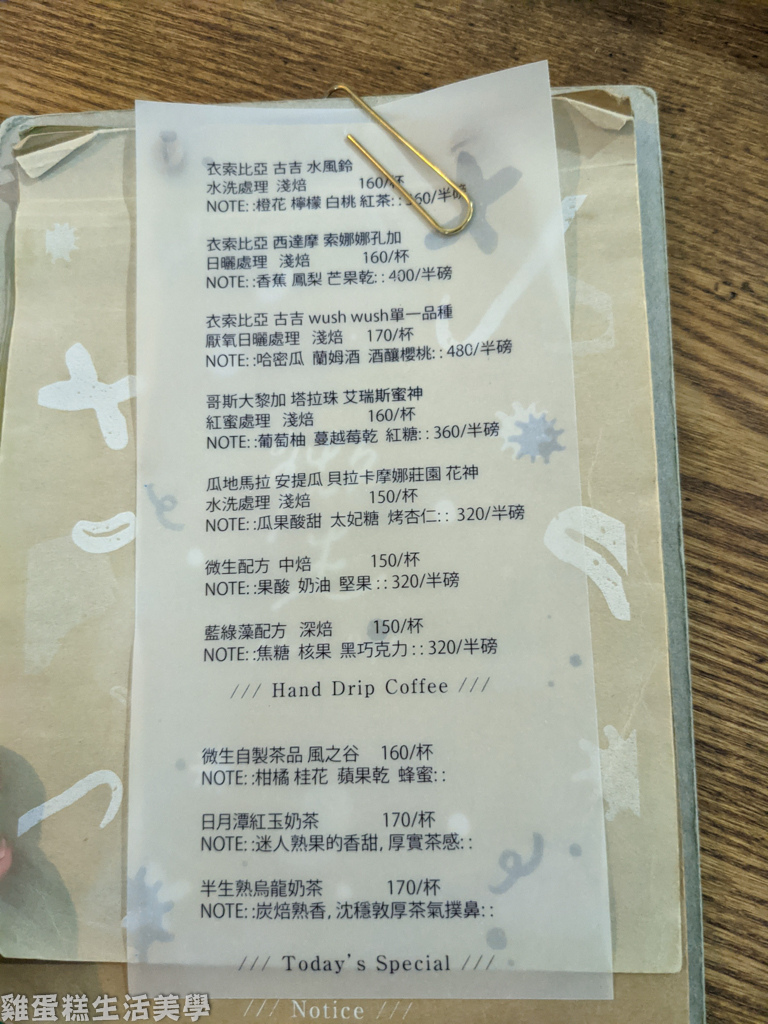 衣索比亞 古吉 水風鈴
水洗處理 淺焙 160/杯
NOTE: :橙花 檸檬 白桃 紅茶: : 360/半磅
衣索比亞 西達摩 索娜娜孔加
日曬處理 淺焙 160/杯
NOTE: :香蕉 鳳梨 芒果乾: : 400/半磅
衣索比亞 古吉 wush wush單一品種
厭氧日曬處理 淺焙 170/杯
NOTE: :哈密瓜 蘭姆酒 酒釀櫻桃: : 480/半磅
哥斯大黎加 塔拉珠 艾瑞斯蜜神
紅蜜處理 淺焙 160/杯
NOTE: :葡萄柚 蔓越莓乾 紅糖: : 360/半磅
瓜地馬拉 安提瓜 貝拉卡摩娜莊園 花神
水洗處理 淺焙 150/杯
NOTE: :瓜果酸甜 太妃糖 烤杏仁: : 320/半磅
微生配方 中焙 150/杯
NOTE: :果酸 奶油 堅果 : : 320/半磅
藍綠藻配方 深焙 150/杯
NOTE: :焦糖 核果 黑巧克力 : : 320/半磅
/// Hand Drip Coffee ///
微生自製茶品 風之谷 160/杯
NOTE: :柑橘 桂花 蘋果乾 蜂蜜: :
日月潭紅玉奶茶 170/杯
NOTE: :迷人熟果的香甜, 厚實茶感: :
半生熟烏龍奶茶 170/杯
NOTE: :炭焙熟香, 沈穩敦厚茶氣撲鼻: :
/// Today's Special ///
/// Notice ///
雞蛋糕生活美學